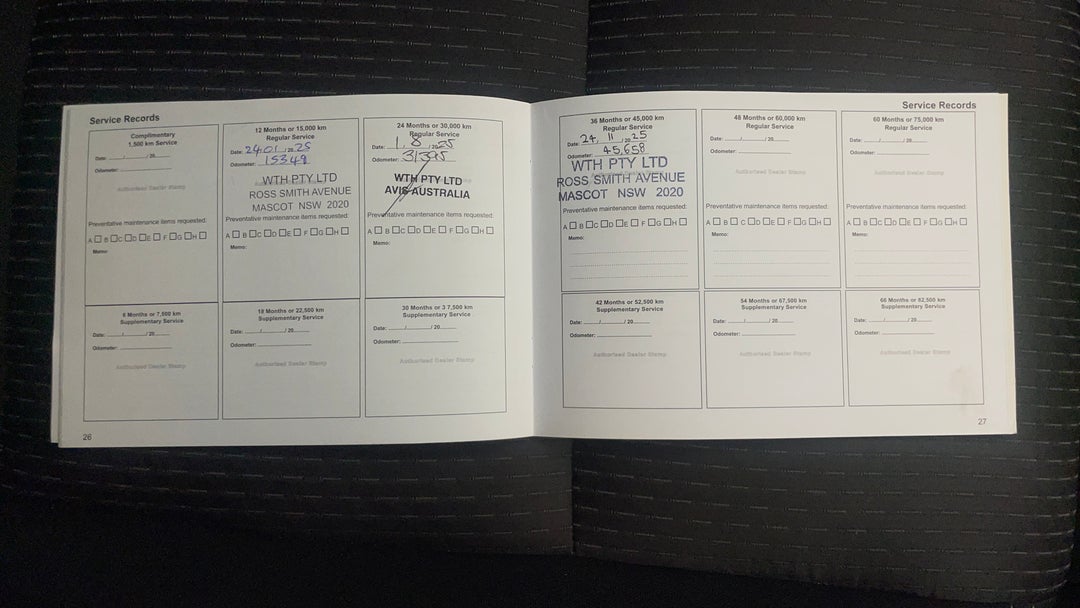 Service Records
Complimentary
1,500 km Service
Date: / / 20
Odometer:
Authorised Dealer Stamp
Preventative maintenance items requested:
A B C D E F G H
Memo:
12 Months or 15,000 km
Regular Service
Date: 24/01/2025
Odometer: 15342
WTH PTY LTD
ROSS SMITH AVENUE
MASCOT NSW 2020
Preventative maintenance items requested:
A B C D E F G H
Memo:
24 Months or 30,000 km
Regular Service
Date: 1/8/2025
Odometer:
WTH PTY LTD
AVIS AUSTRALIA
Preventative maintenance items requested:
A B C D E F G H
Memo:
6 Months or 7,500 km
Supplementary Service
Date: / / 20
Odometer:
Authorised Dealer Stamp
18 Months or 22,500 km
Supplementary Service
Date: / / 20
Odometer:
Authorised Dealer Stamp
30 Months or 3 7,500 km
Supplementary Service
Date: / / 20
Odometer:
Authorised Dealer Stamp
26
Service Records
36 Months or 45,000 km
Regular Service
Date: 24/11/2025
Odometer: 45,658
WTH PTY LTD
ROSS SMITH AVENUE
MASCOT NSW 2020
Preventative maintenance items requested:
A B C D E F G H
Memo:
48 Months or 60,000 km
Regular Service
Date: / / 20
Odometer:
Authorised Dealer Stamp
Preventative maintenance items requested:
A B C D E F G H
Memo:
60 Months or 75,000 km
Regular Service
Date: / / 20
Odometer:
Authorised Dealer Stamp
Preventative maintenance items requested:
A B C D E F G H
Memo:
42 Months or 52,500 km
Supplementary Service
Date: / / 20
Odometer:
Authorised Dealer Stamp
54 Months or 67,500 km
Supplementary Service
Date: / / 20
Odometer:
Authorised Dealer Stamp
66 Months or 82,500 km
Supplementary Service
Date: / / 20
Odometer:
Authorised Dealer Stamp
27